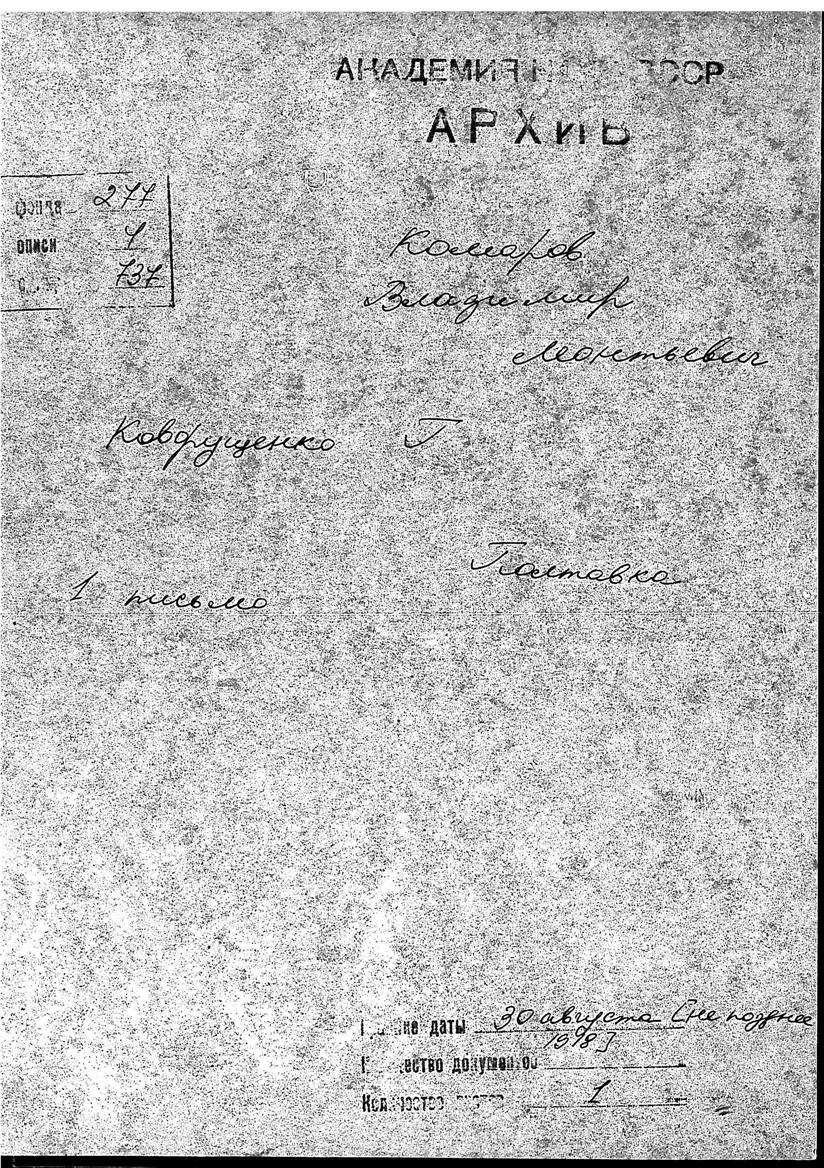 АКАДЕМИЯ НАУК СССР
АРХИВ
277
описи 4
737
Комаров
Владимир
Леонтьевич
Ковдрущенко Г
Полтавка
1 письмо
даты 30 августа [не позднее
1918]
Количество документов
Количество листов 1